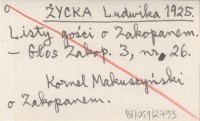 o ŻYCKA Ludwika 1925.
Listy gości o Zakopanem.
– Głos Zakop. 3, nr. 26.
Kornel Makuszyński
o Zakopanem.
BJ/051/2793